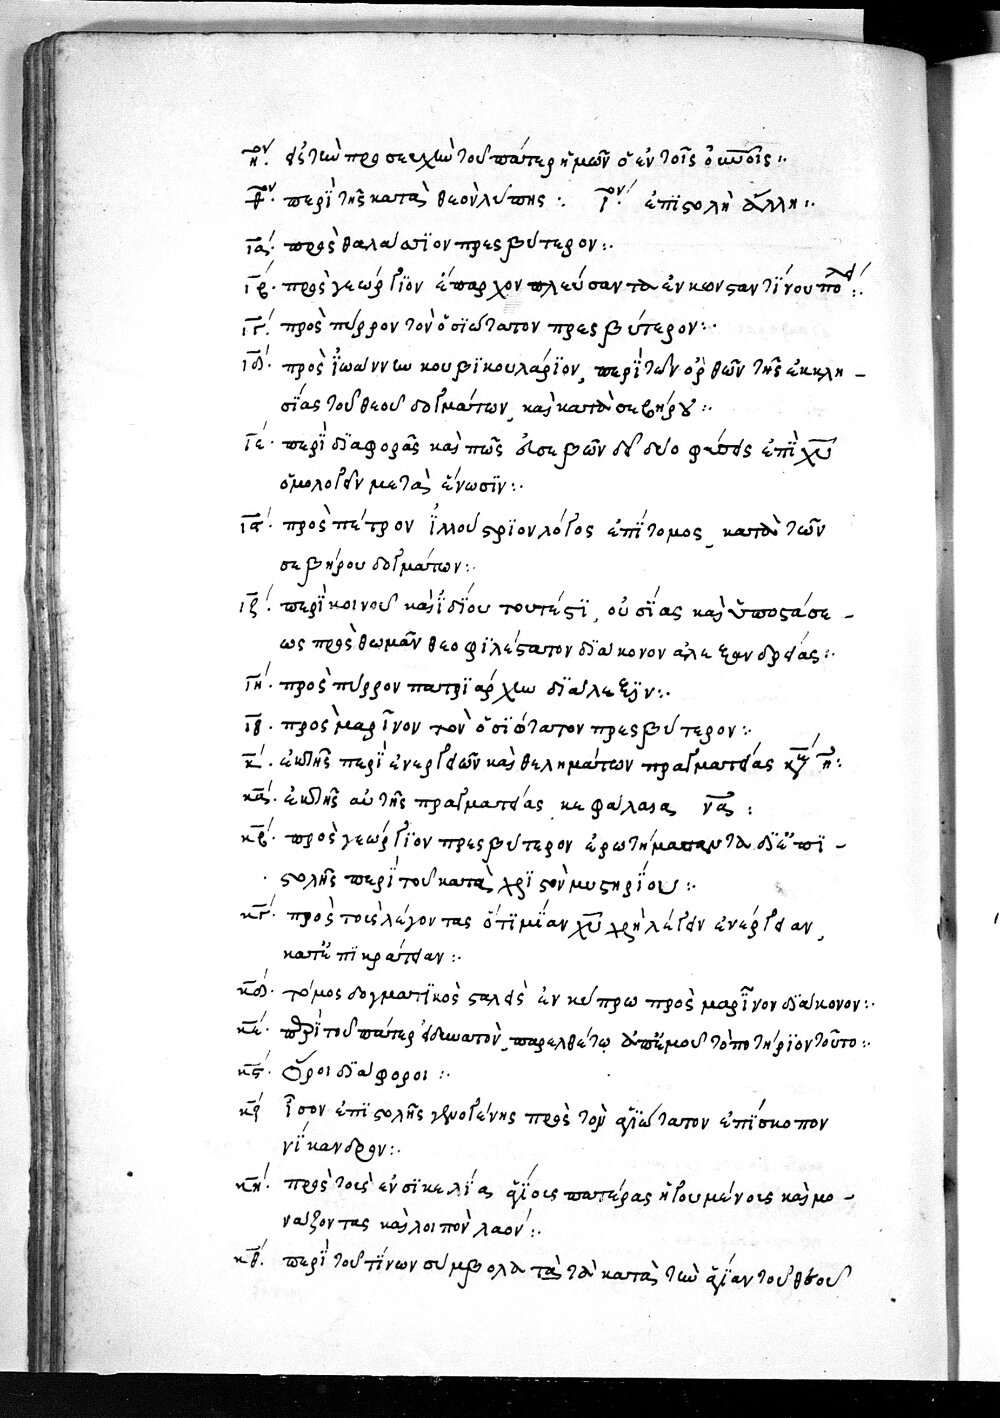 η΄ον. εἰς τὴν προσευχὴν τοῦ πάτερ ἡμῶν ὁ ἐν τοῖς οὐνοῖς :·
θ΄ον. περὶ τῆς κατὰ θεὸν λύπης :· ι΄ον. ἐπιστολὴ ἄλλη :·
ια΄. πρὸς θαλάσσιον πρεσβύτερον :·
ιβ΄. πρὸς γεώργιον ἔπαρχον πλεύσαντα ἐν κωνσταντίνου πόλει :·
ιγ΄. πρὸς πύρρον τὸν ὁσιώτατον πρεσβύτερον :·
ιδ΄. πρὸς ἰωάννην κουβικουλάριον, περὶ τῶν ὀρθῶν τῆς ἐκκλη-
σίας τοῦ θεοῦ δογμάτων, καὶ κατὰ σεβήρου :·
ιε΄. περὶ διαφορᾶς καὶ πῶς εὐσεβῶν δεῖ δύο φύσεις ἐπὶ χυ
ὁμολογεῖν μετὰ ἕνωσιν :·
ις΄. πρὸς πέτρον ἰλλούστριον λόγος ἐπίτομος, κατὰ τῶν
σεβήρου δογμάτων :·
ιζ΄. περὶ κοινοῦ καὶ ἰδίου τουτέστι, οὐσίας καὶ ὑποστάσε-
ως πρὸς θωμᾶν θεοφιλέστατον διάκονον ἀλεξανδρείας :·
ιη΄. πρὸς πύρρον πατριάρχην διάλεξιν :·
ιθ΄. πρὸς μαρῖνον τὸν ὁσιώτατον πρεσβύτερον :·
κ΄. ἐκ τῆς περὶ ἐνεργειῶν καὶ θελημάτων πραγματείας κεφ ν΄ :·
κα΄. ἐκ τῆς αὐτῆς πραγματείας κεφάλαια να΄ :
κβ΄. πρὸς γεώργιον πρεσβύτερον ἐρωτήσαντα δι' ἐπι-
στολῆς περὶ τοῦ κατὰ χριστὸν μυστηρίου :·
κγ΄. πρὸς τοὺς λέγοντας ὅτι μίαν χυ χρὴ λέγειν ἐνέργειαν,
κατ' ἐπικράτειαν :·
κδ΄. τόμος δογματικὸς σταλεὶς ἐν κύπρω πρὸς μαρῖνον διάκονον :·
κε΄. περὶ τοῦ πάτερ εἰ δυνατὸν, παρελθέτω ἀπ' ἐμοῦ τὸ ποτήριον τοῦτο :·
κς΄. ὅροι διάφοροι :·
κζ΄ ἴσον ἐπιστολῆς γενομένης πρὸς τὸν ἁγιώτατον ἐπίσκοπον
νίκανδρον :·
κη΄. πρὸς τοὺς ἐν σικελία ἁγίους πατέρας ἡγουμένους καὶ μο-
νάζοντας καὶ λοιπὸν λαόν :·
κθ΄. περὶ τοῦ τίνων σύμβολα τὰ κατὰ τὴν ἁγίαν τοῦ θεοῦ